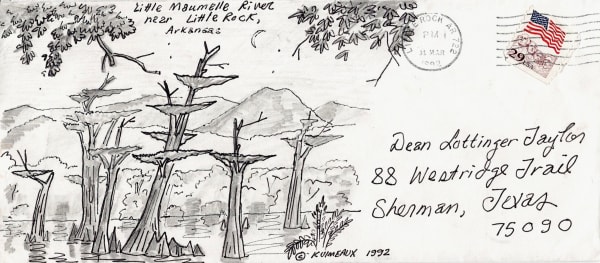 Little Maumelle River
near Little Rock,
Arkansas
ROCK AR 722
PM
31 MAR
1992
29
Dean Lottinger Taylor
88 Westridge Trail
Sherman, Texas
75090
© KUIMEAUX 1992